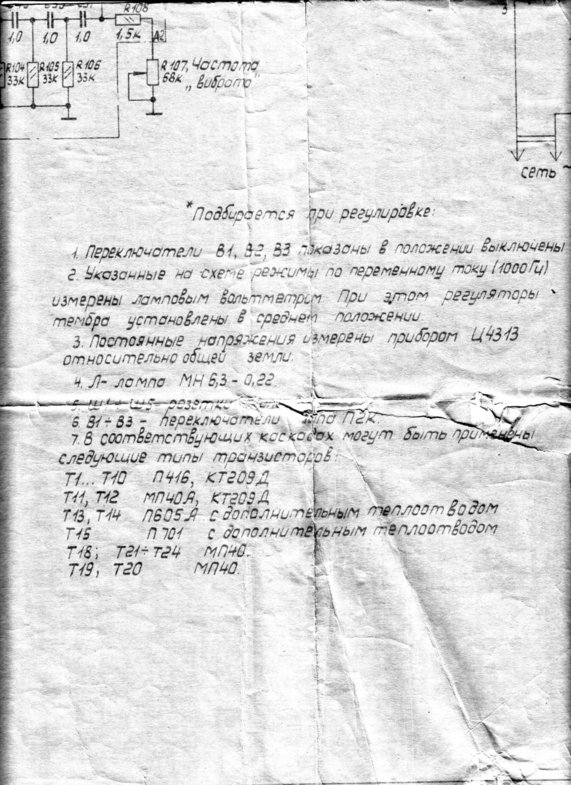 R108
1,0 1,0 1,0 1,5к А2
R104 R105 R106 R107, Частота
33к 33к 33к 68к „вибрато"
сеть ~
*Подбирается при регулировке:
1. Переключатели В1, В2, В3 показаны в положении выключены
2. Указанные на схеме режимы по переменному току (1000Гц)
измерены ламповым вольтметрим. При этом регуляторы
тембра установлены в среднем положении.
3. Постоянные напряжения измерены прибором Ц4313
относительно общей земли.
4. Л- лампа МН 6,3 - 0,22
5. розетки
6. В1÷В3 - переключатели типа П2К.
7. В соответствующих каскадах могут быть применены
следующие типы транзисторов:
Т1... Т10 П416, КТ209Д
Т11, Т12 МП40А, КТ209Д
Т13, Т14 П605А с дополнительным теплоотводом
Т15 П701 с дополнительным теплоотводом
Т18; Т21÷Т24 МП40.
Т19; Т20 МП40.